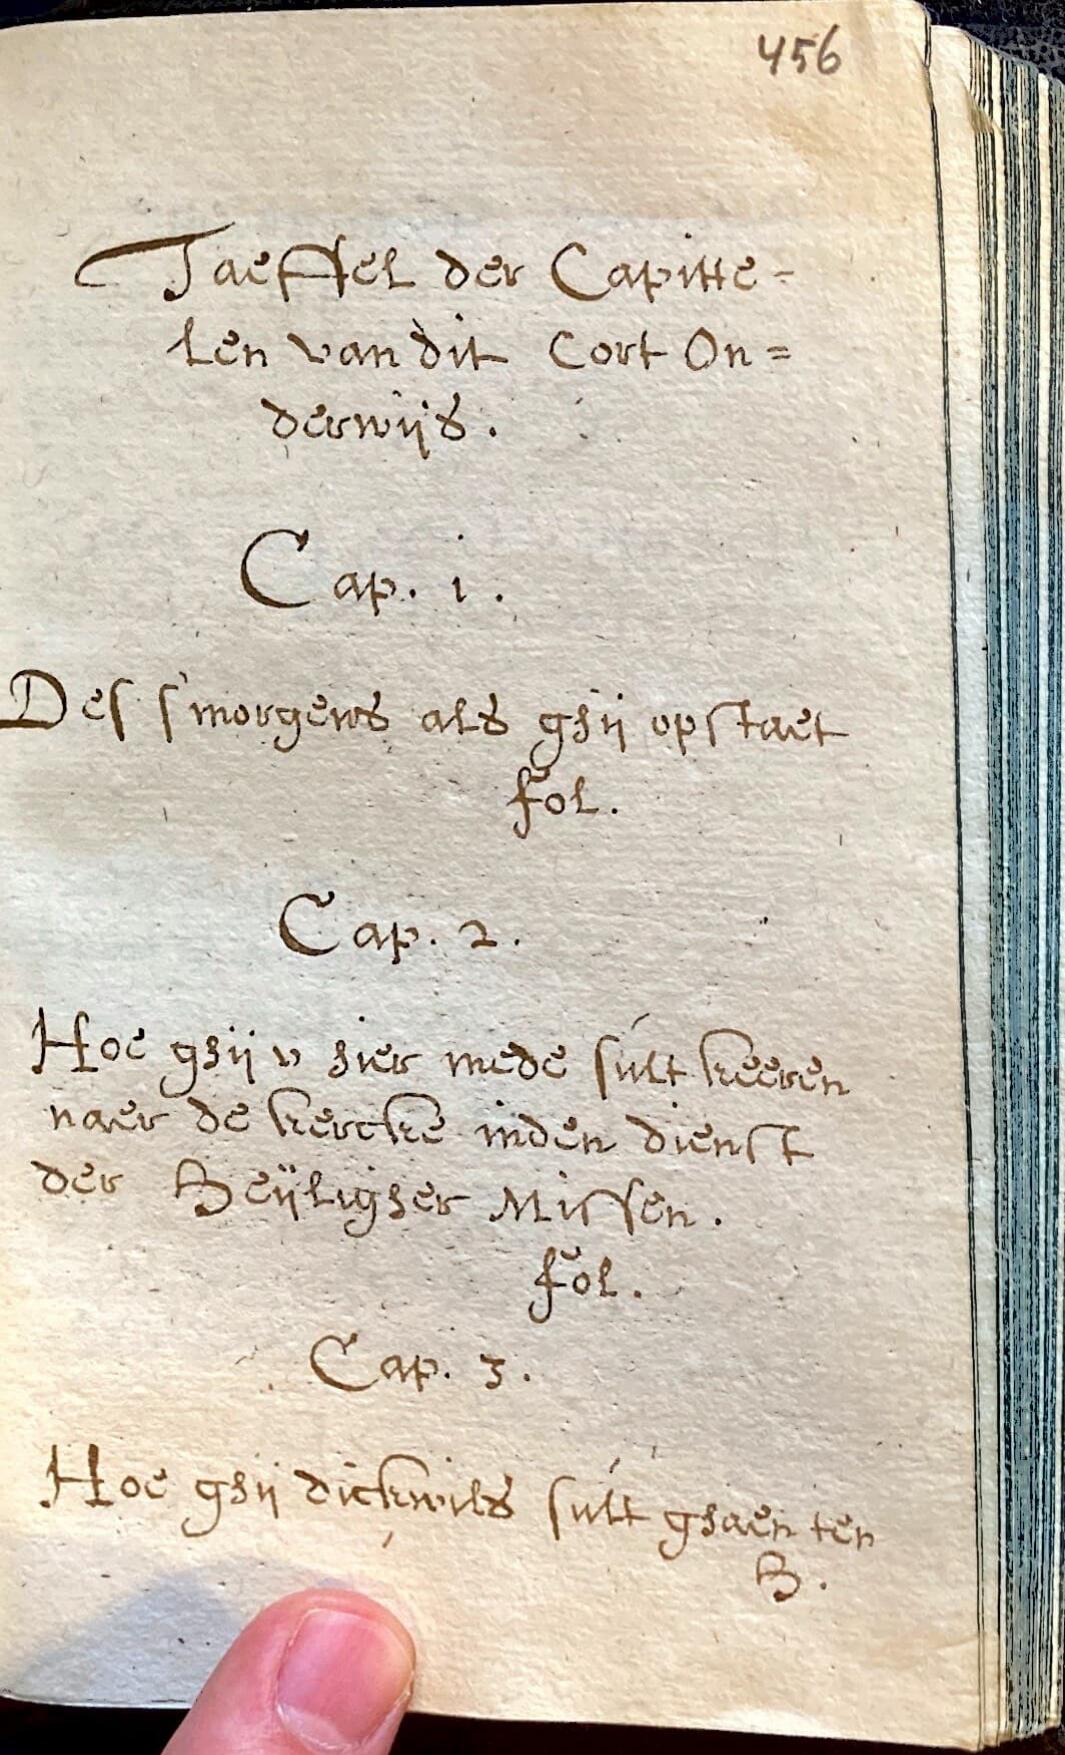 456
Taeffel der Capitte-
len van dit Cort On=
derwijs.
Cap. 1.
Des s'morgens als ghij opstaet
fol.
Cap. 2.
Hoe ghij v hier mede sult keeren
naer de kercke inden dienst
der Heÿligher Missen.
fol.
Cap. 3.
Hoe ghij dickwils sult ghaen ten
H.